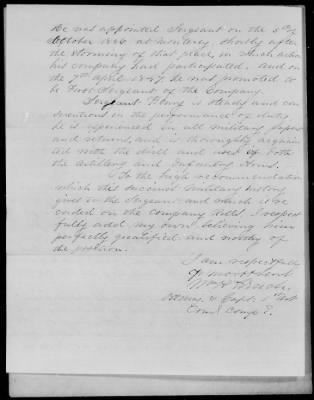 He was appointed Sergeant on the 5th of
October 1846 at Monterey, shortly after
the storming of that place, in which action
his company had participated. And on
the 7th April 1847, he was promoted to
be First Sergeant of the Company.
Sergeant is steady and con-
scientious in the performance of duty
he is experienced in all military papers
and returns, and is thoroughly acquain
ted with the drill and uses of both
the Artillery and Infantry Arms.
To the high recommendation
which this succinct military history
gives to the Sergeant and which is re
corded on the Company Rolls, I respect
fully add my own, believing him
perfectly qualified and worthy of
the position.
I am respectfully
Yr most obt servt
Wm H French
& Capt. 1st Art
Com'd Comp'y E.